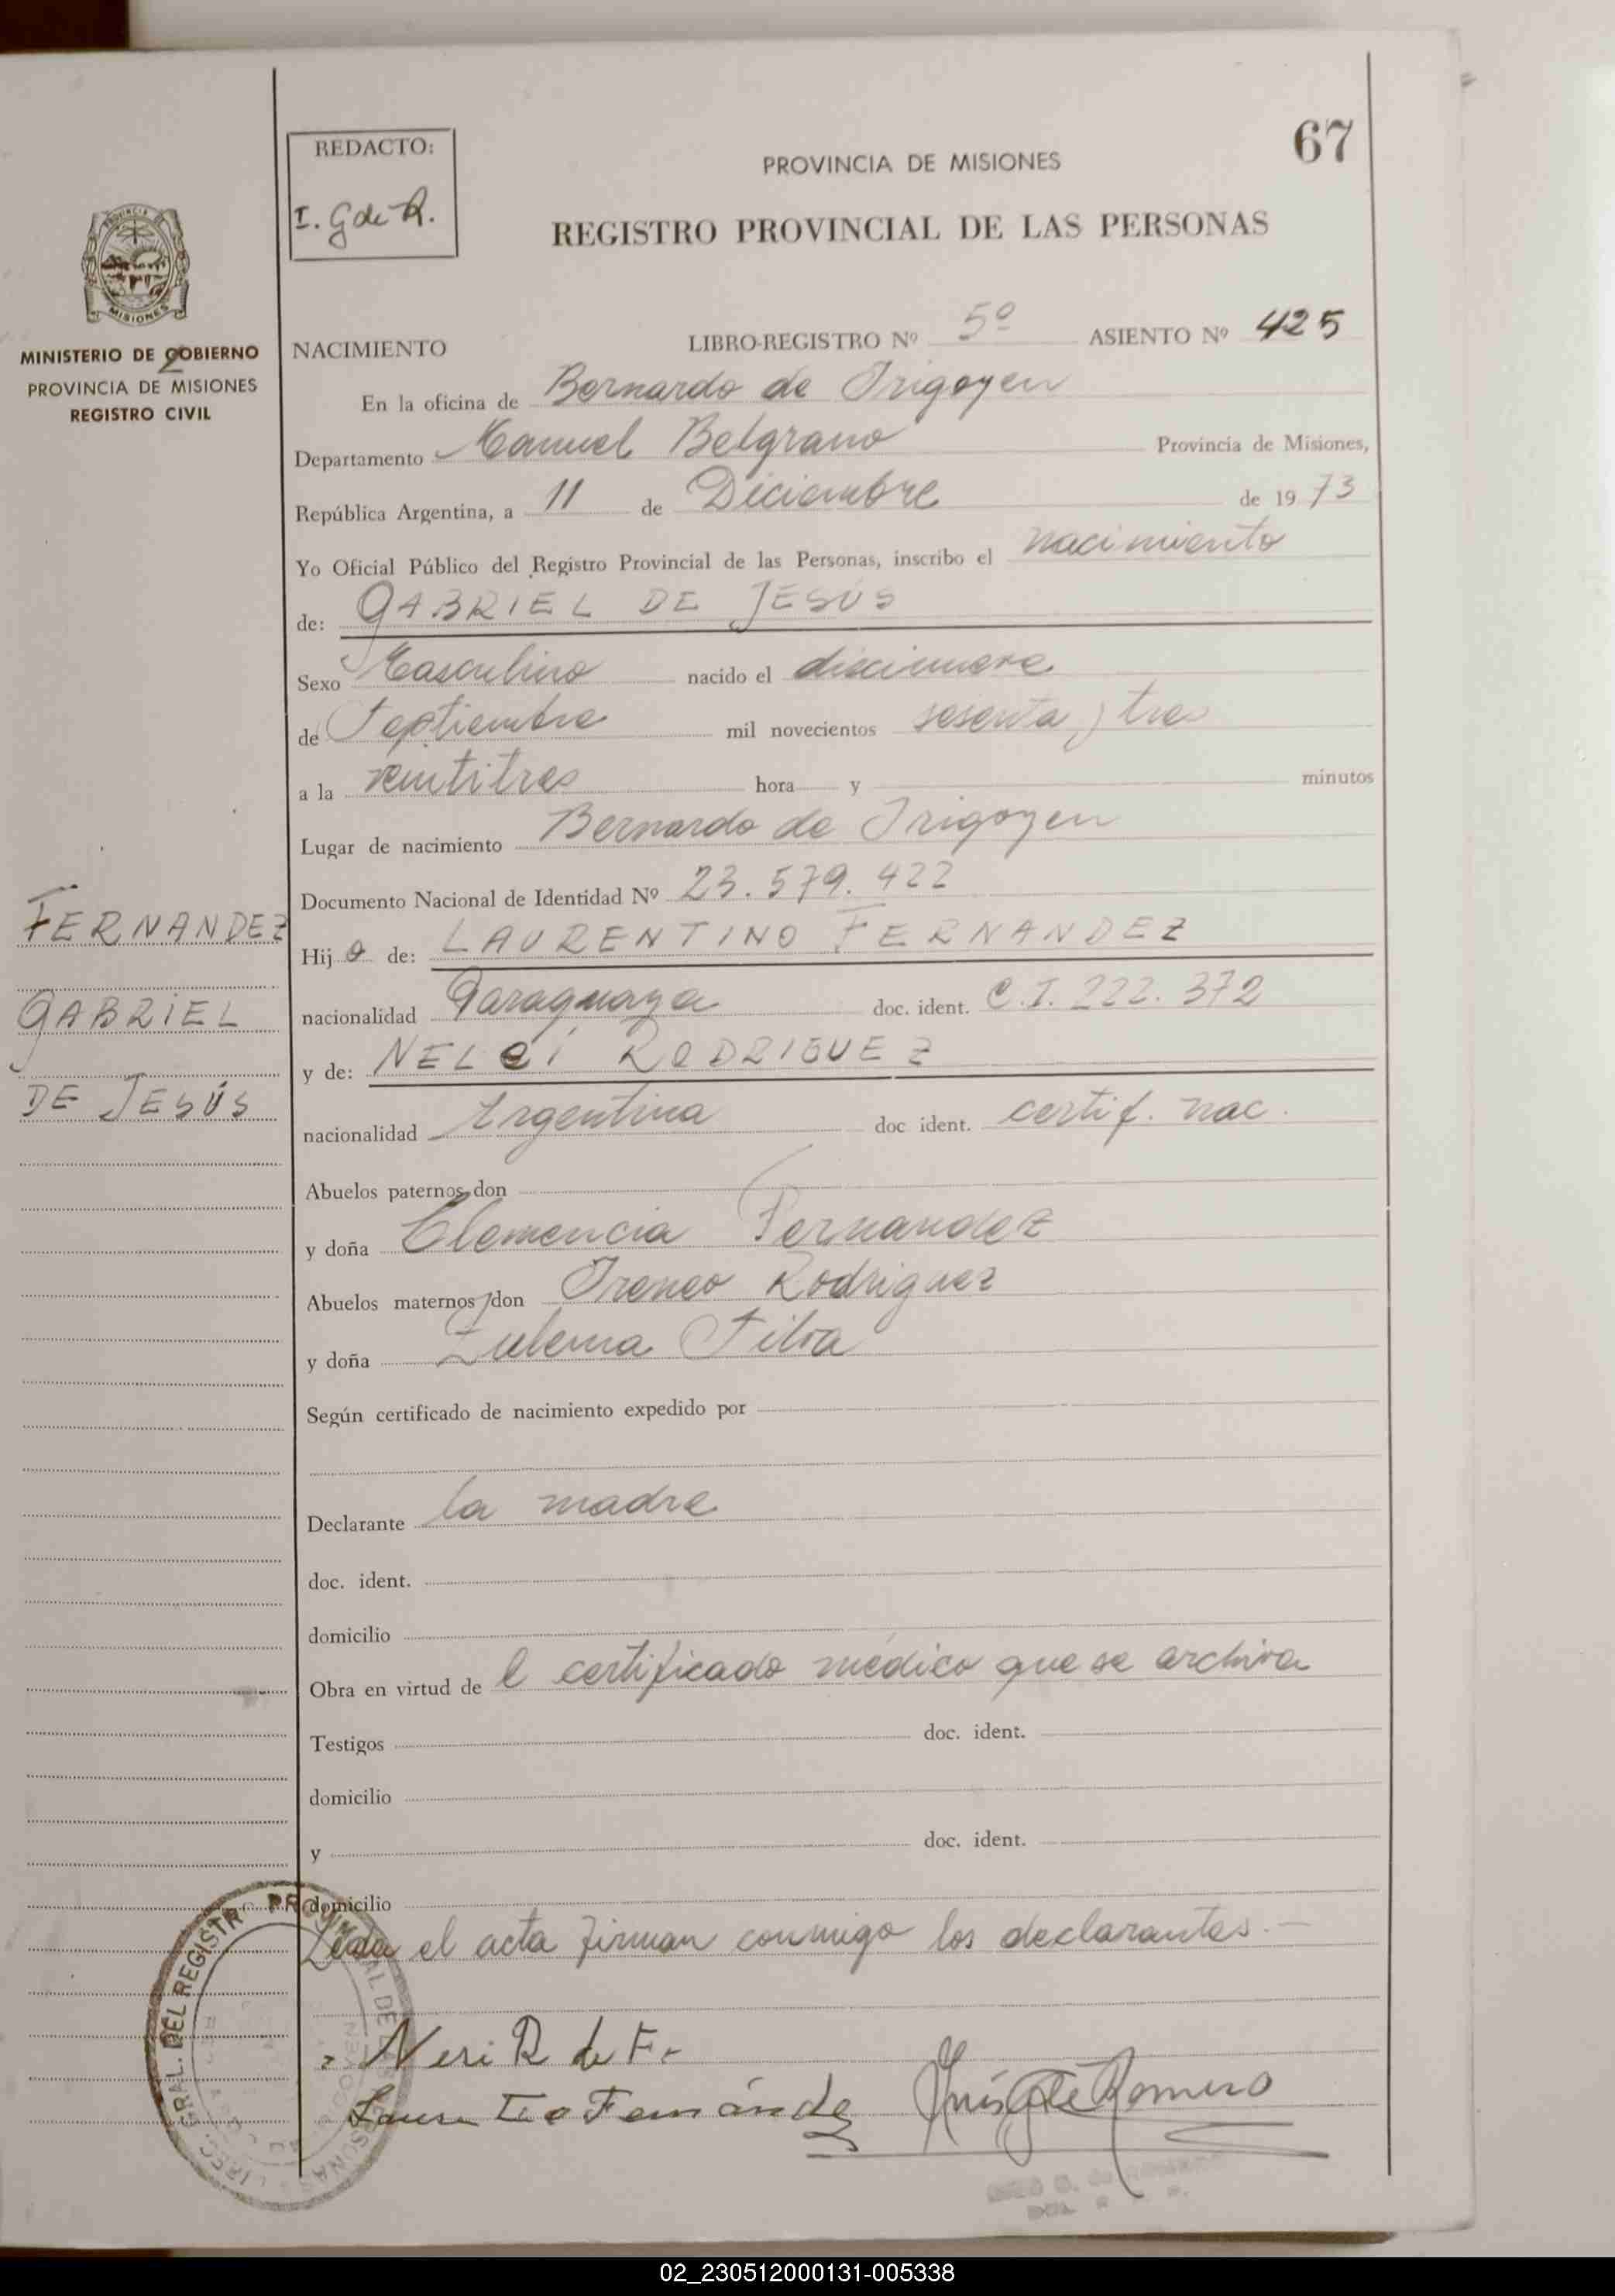 67
REDACTO:
I. G de R.
PROVINCIA DE MISIONES
REGISTRO PROVINCIAL DE LAS PERSONAS
MISIONES
MINISTERIO DE GOBIERNO
PROVINCIA DE MISIONES
REGISTRO CIVIL
NACIMIENTO LIBRO-REGISTRO Nº 5º ASIENTO Nº 425
En la oficina de Bernardo de Irigoyen
Departamento Manuel Belgrano Provincia de Misiones,
República Argentina, a 11 de Diciembre de 1973
Yo Oficial Público del Registro Provincial de las Personas, inscribo el nacimiento
de: GABRIEL DE JESÚS
Sexo Masculino nacido el diecinueve
de Septiembre mil novecientos sesenta y tres
a la veintitres hora y minutos
Lugar de nacimiento Bernardo de Irigoyen
Documento Nacional de Identidad Nº 23.579.422
FERNANDEZ
GABRIEL
DE JESÚS
Hijo de: LAURENTINO FERNANDEZ
nacionalidad Paraguaya doc. ident. C.I. 222.372
y de: NELCI RODRIGUEZ
nacionalidad Argentina doc ident. certif. nac.
Abuelos paternos don
y doña Clemencia Fernandez
Abuelos maternos don Ireneo Rodriguez
y doña Zulema Silva
Según certificado de nacimiento expedido por
Declarante la madre
doc. ident.
domicilio
Obra en virtud de l certificado médico que se archiva
Testigos doc. ident.
domicilio
y doc. ident.
domicilio
Leida el acta firman conmigo los declarantes.—
Neri R de F.
Laurentino Fernández
Inés G de Romero
DIREC. GRAL. DEL REGISTRO PROVINCIAL DE LAS PERSONAS
02_230512000131-005338